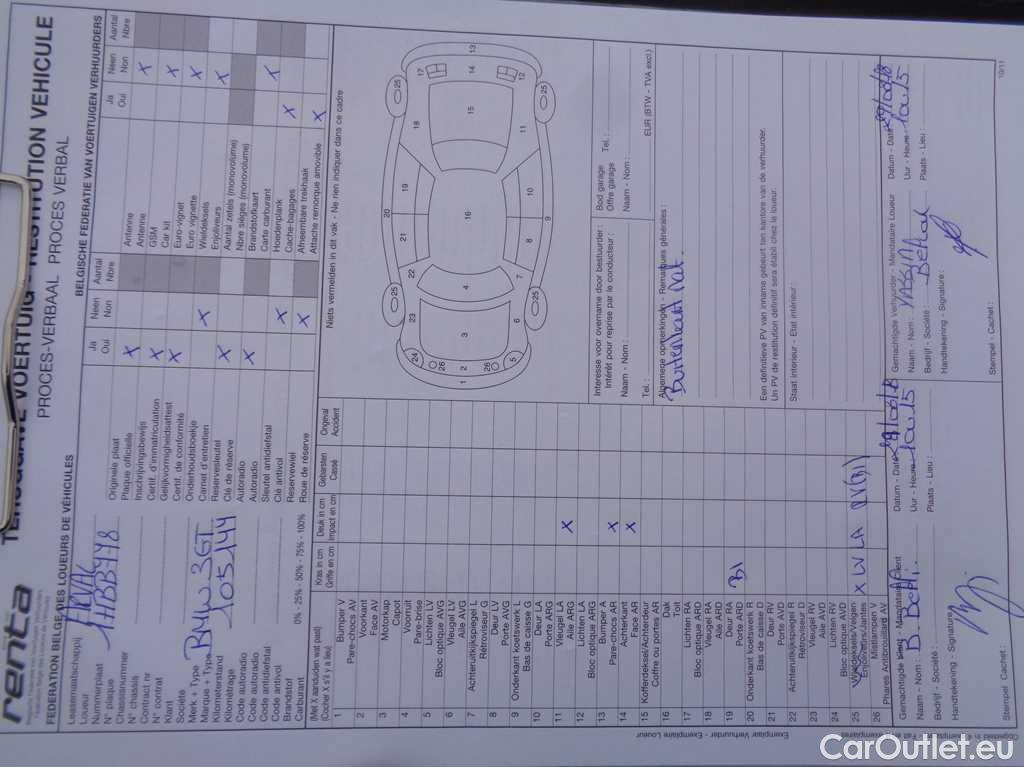 renta
TERUGGAVE VOERTUIG - RESTITUTION VEHICULE
PROCES-VERBAAL PROCES VERBAL
FEDERATION BELGE DES LOUEURS DE VÉHICULES
BELGISCHE FEDERATIE VAN VOERTUIGEN VERHUURDERS
Leasemaatschappij
Loueur
Nummerplaat
N° plaque 1HBB778
Chassisnummer
N° chassis
Contract nr
N° contrat
Klant
Société
Merk + Type
Marque + Type BMW 3GT
Kilometerstand
Kilométrage 105.144
Code autoradio
Code autoradio
Code antidiefstal
Code antivol
Brandstof
Carburant 0% - 25% - 50% - 75% - 100%
Ja Neen Aantal
Oui Non Nbre
Originele plaat
Plaque officielle X
Inschrijvingsbewijs
Certif. d'immatriculation X
Gelijkvormigheidsattest
Certif. de conformité X
Onderhoudsboekje
Carnet d'entretien X
Reservesleutel
Clé de réserve X
Autoradio
Autoradio X
Sleutel antidiefstal
Clé antivol X
Reservewiel
Roue de réserve X
Ja Neen Aantal
Oui Non Nbre
Antenne
Antenne X
GSM
Car kit X
Euro-vignet
Euro vignette X
Wieldeksels
Enjoliveurs X
Aantal zetels (monovolume)
Nbre sièges (monovolume)
Brandstofkaart
Carte carburant X
Hoedenplank
Cache-bagages X
Afneembare trekhaak
Attache remorque amovible X
(Met X aanduiden wat past)
(Cocher X s'il y a lieu)
Kras in cm Deuk in cm Gebarsten Ongeval
Griffe en cm Impact en cm Cassé Accident
1 Bumper V
Pare-chocs AV
2 Voorkant
Face AV
3 Motorkap
Capot
4 Voorruit
Pare-brise
5 Lichten LV
Bloc optique AVG
6 Vleugel LV
Aile AVG
7 Achteruitkijkspiegel L
Rétroviseur G
8 Deur LV
Porte AVG
9 Onderkant koetswerk L
Bas de caisse G
10 Deur LA
Porte ARG
11 Vleugel LA
Aile ARG X
12 Lichten LA
Bloc optique ARG
13 Bumper A
Pare-chocs AR X
14 Achterkant
Face AR X
15 Kofferdeksel/Achterdeur
Coffre ou portes AR
16 Dak
Toit
17 Lichten RA
Bloc optique ARD
18 Vleugel RA
Aile ARD
19 Deur RA
Porte ARD B1
20 Onderkant koetswerk R
Bas de caisse D
21 Deur RV
Porte AVD
22 Achteruitkijkspiegel R
Rétroviseur D
23 Vleugel RV
Aile AVD
24 Lichten RV
Bloc optique AVD
25 Wieldeksels/Velgen
Enjoliveurs/Jantes X
26 Mistlampen V
Phares Antibrouillard AV
Niets vermelden in dit vak - Ne rien indiquer dans ce cadre
Interesse voor overname door bestuurder :
Intérêt pour reprise par le conducteur :
Naam - Nom :
Tel. :
Bod garage
Offre garage Tel. :
Naam - Nom :
EUR (BTW - TVA excl.)
Algemene opmerkingen - Remarques générales :
Een definitieve PV van inname gebeurt ten kantore van de verhuurder.
Un PV de restitution définitif sera établi chez le loueur.
Staat interieur - Etat intérieur :
Naam - Nom :
Bedrijf - Société :
Handtekening - Signature :
Stempel - Cachet :
Datum - Date :
Uur - Heure : 10u15
Plaats - Lieu :
Gemachtigde Verhuurder - Mandataire Loueur
Naam - Nom :
Bedrijf - Société :
Handtekening - Signature :
Stempel - Cachet :
Datum - Date :
Uur - Heure : 10u15
Plaats - Lieu :
Exemplaar Verhuurder - Exemplaire Loueur
10/11
CarOutlet.eu